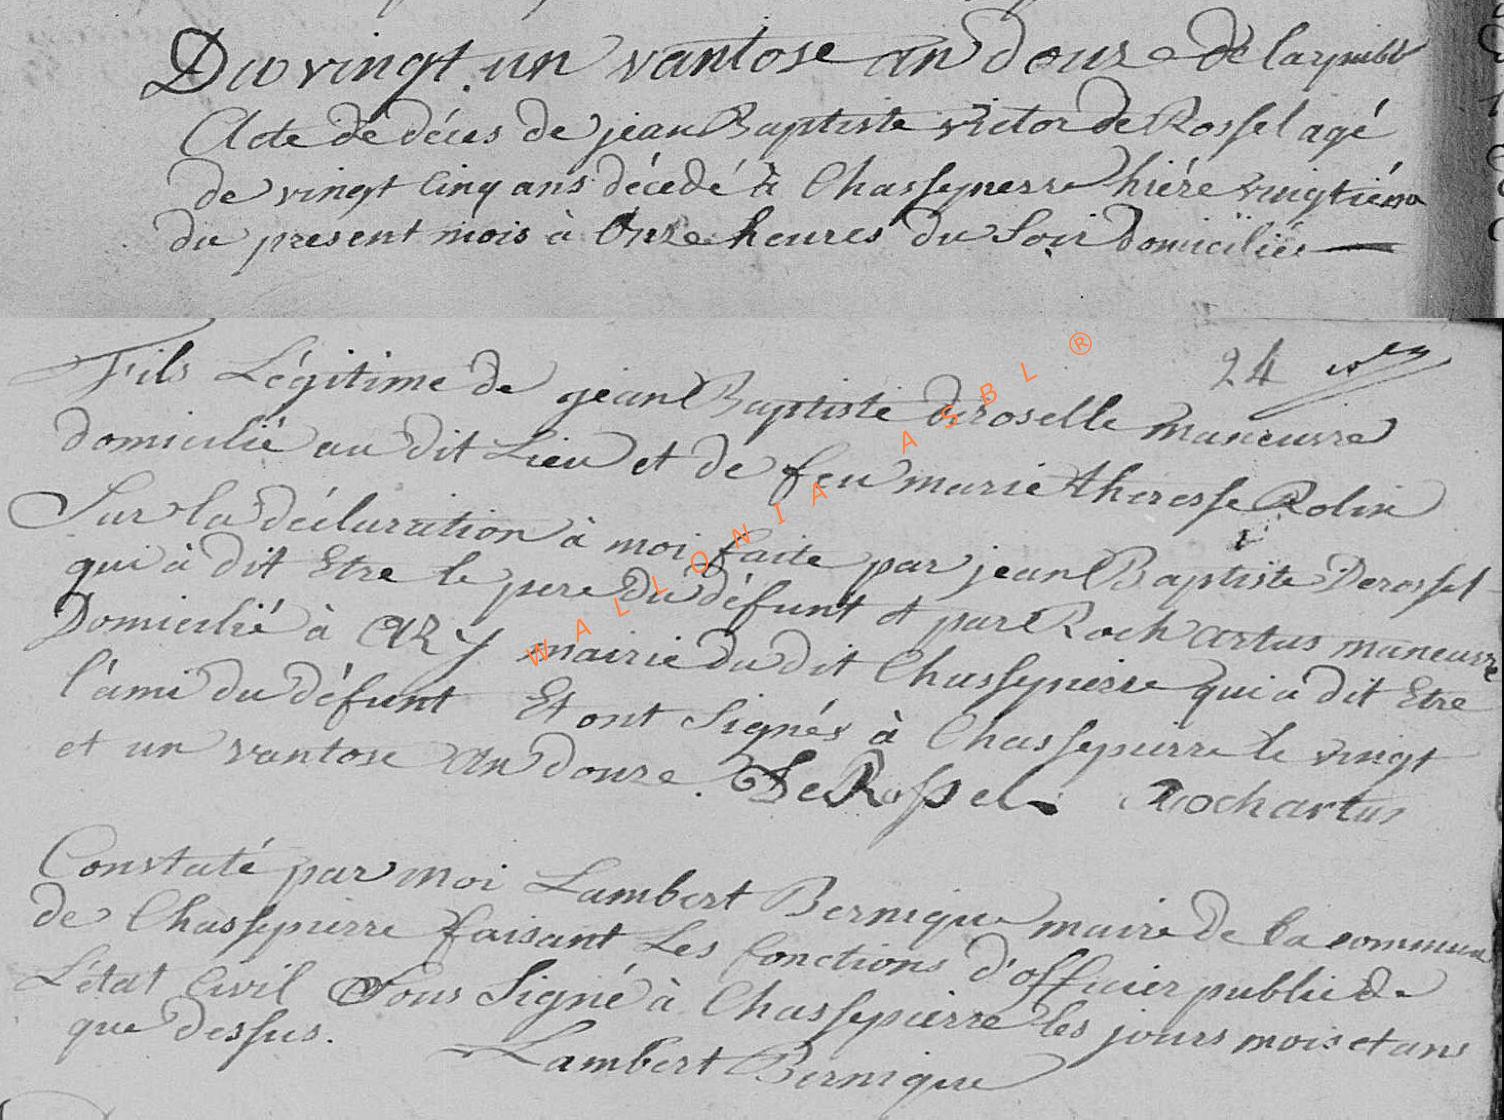 Du vingt un vantose an douze de la republ
Acte de déces de jean Baptiste victor de Rossel agé
de vingt cinq ans décédé à Chassepierre hiére vingtiéme
du present mois à Onze heures du Soir domiciliés
24
Fils Légitime de jean Baptiste deroselle maneuvre
domicilié au dit Lieu et de feu marie theresse Rolin
Sur la déclaration à moi faite par jean Baptiste Derossel
qui à dit Etre le pere du défunt et par Roch artus maneuvre
Domicilié à ARy mairie du dit Chassepierre qui a dit Etre
l'ami du défunt Et ont Signés à Chassepierre le vingt
et un vantose an douze. DeRossel Rochartus
Constaté par moi Lambert Bernique maire de la commune
de Chassepierre faisant Les fonctions d'officier public de
L'état Civil Sous Signé à Chassepierre les jours mois et ans
que dessus.
Lambert Bernique
WALLONIA ASBL ®